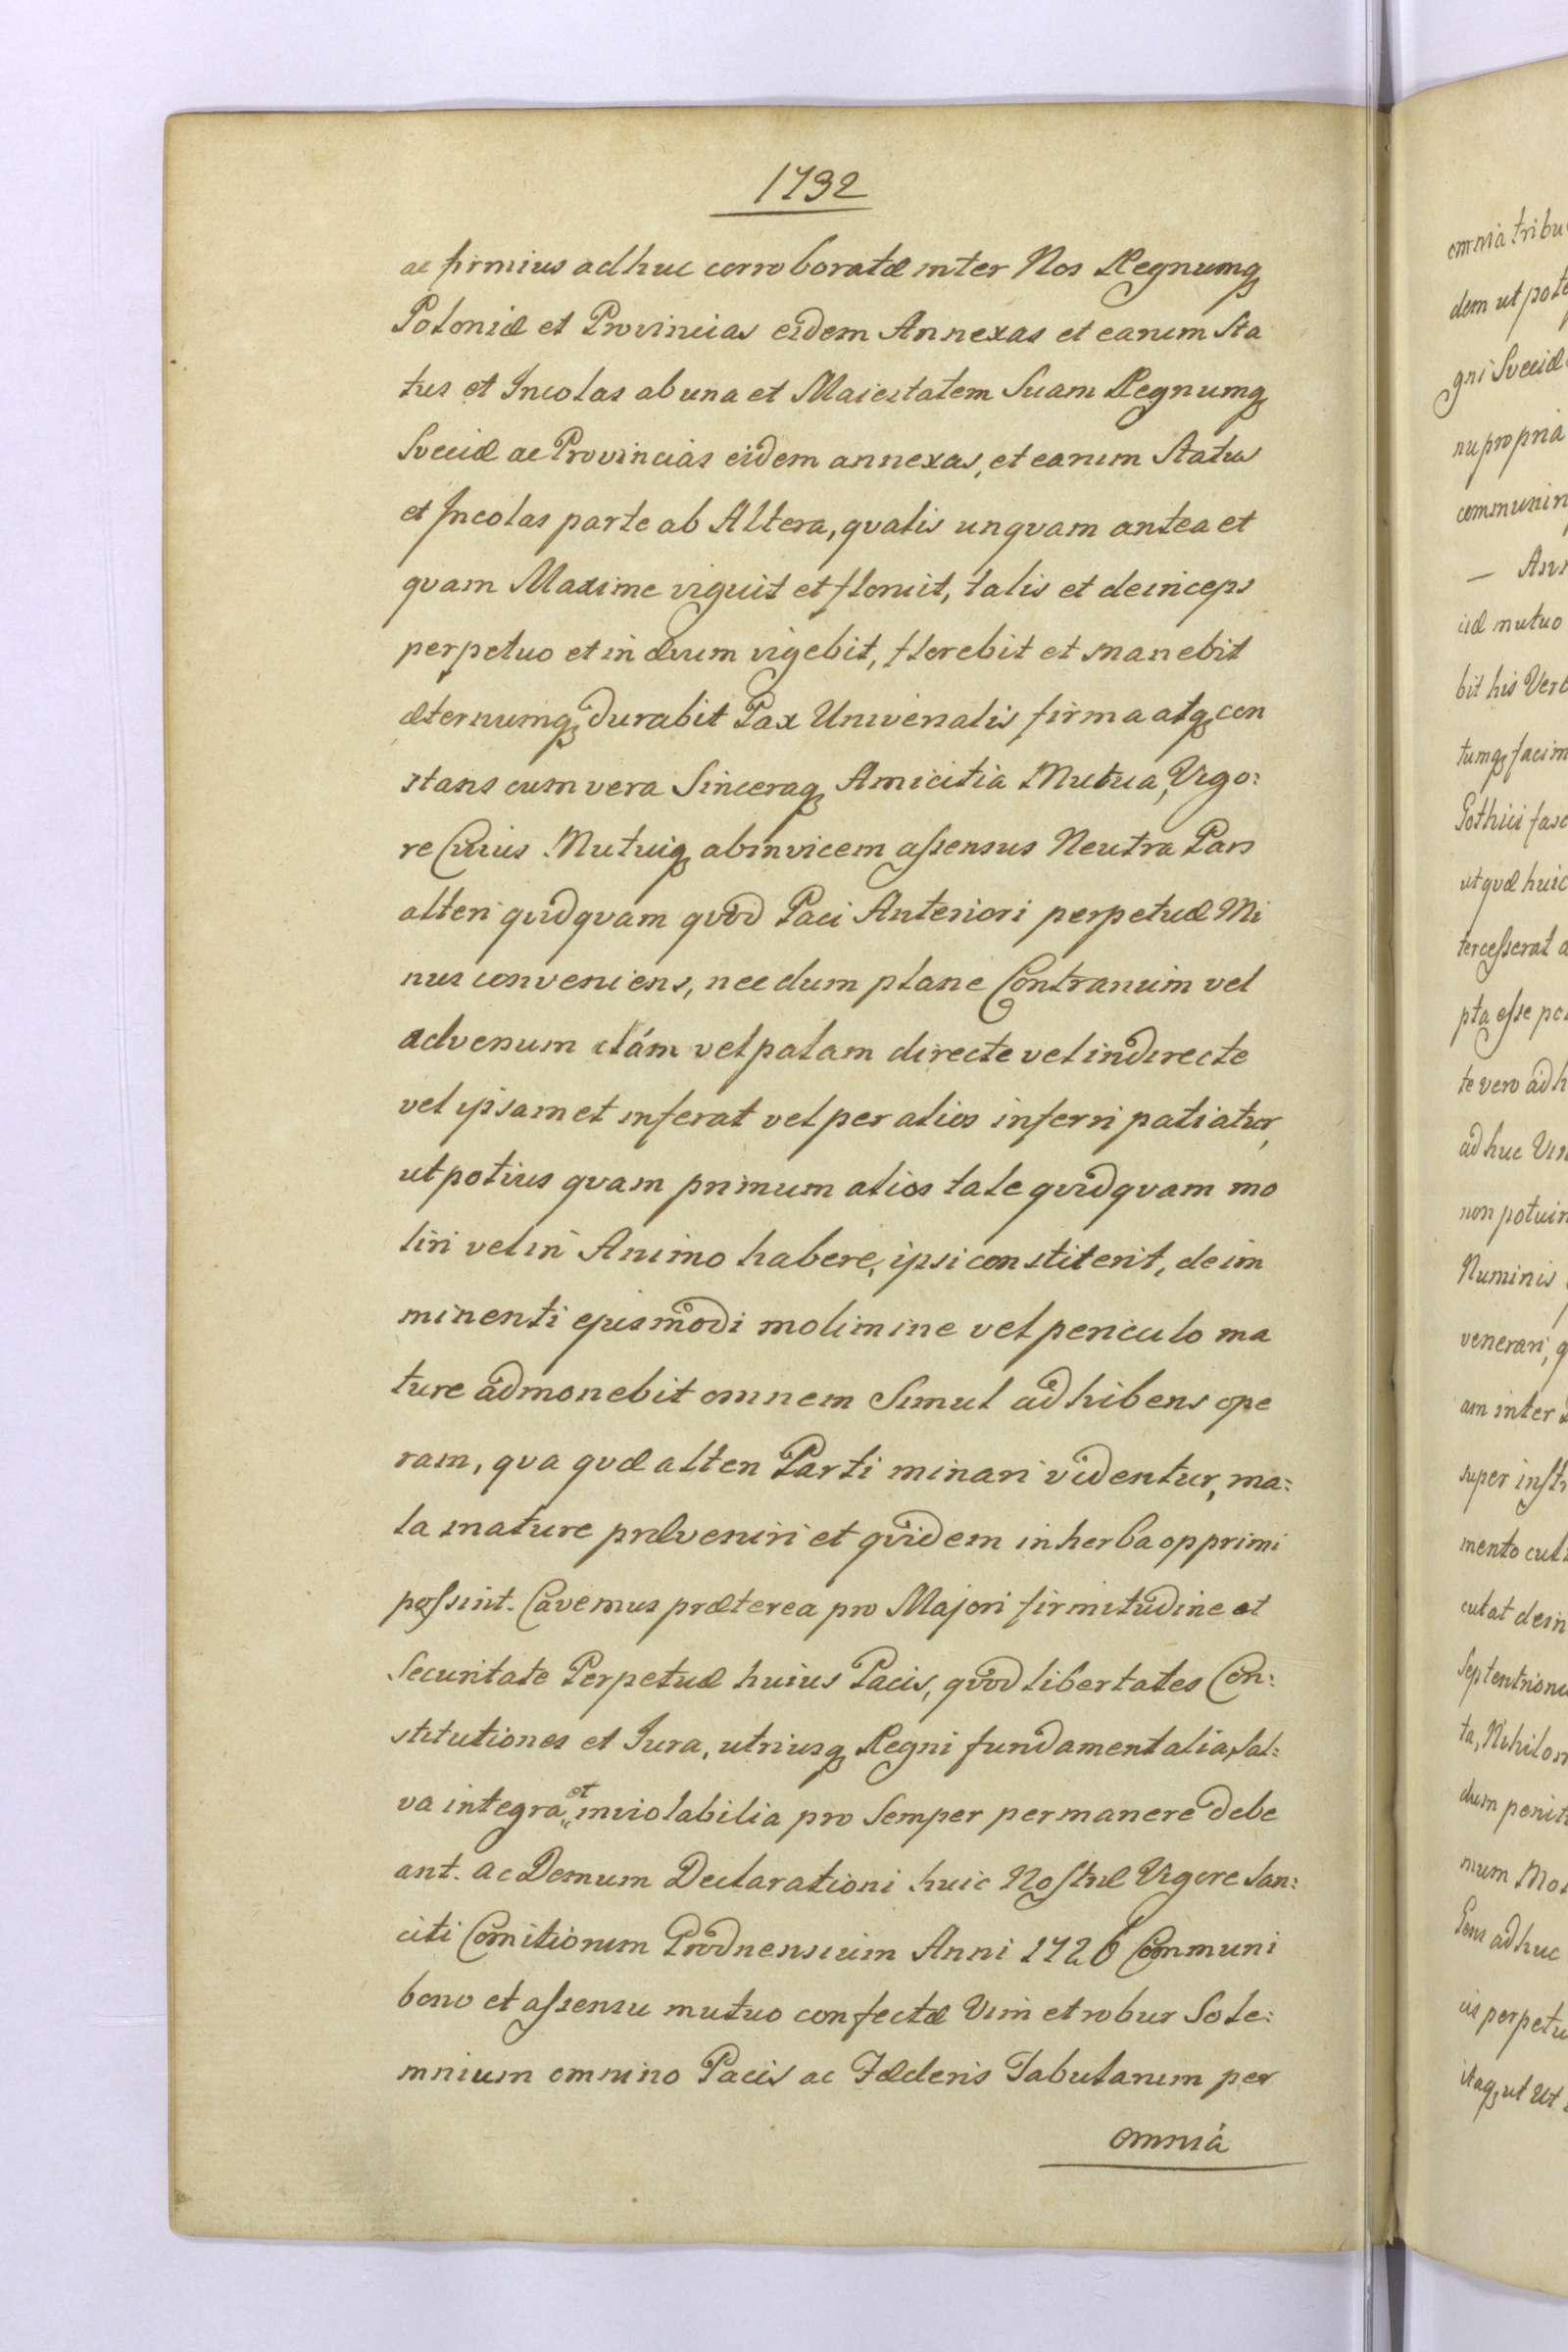 1732
ac firmius adhuc corroboratæ inter Nos Regnumq;
Poloniæ et Provincias eidem Annexas et earum Sta
tus et Incolas ab una et Maiestatem Suam Regnumq;
Sveciæ ac Provincias eidem annexas, et earum Status
et Incolas parte ab Altera, qualis unquam antea et
quam Maxime viguit et floruit, talis et deinceps
perpetuo et in ævum vigebit, florebit et manebit
æternumq; durabit Pax Universalis firma atq; con
stans cum vera Sinceraq; Amicitia Mutua, Vigo:
re Cuius Mutuiq; abinvicem assensus Neutra Pars
alteri quidquam quod Paci Anteriori perpetuæ Mi
nus conveniens, necdum plane Contrarium vel
adversum clám vel palam directe vel indirecte
vel ipsamet inferat vel per alios inferri patiatur,
ut potius quam primum alios tale quidquam mo
liri vel in Animo habere, ipsi constiterit, de im
minenti ejusmodi molimine vel periculo ma
ture admonebit omnem Simul adhibens ope
ram, qua quæ alteri Parti minari videntur, ma:
la mature præveniri et quidem in herba opprimi
possint. Cavemus præterea pro Majori firmitudine et
Securitate Perpetuæ huius Pacis, quod libertates Con:
stitutiones et Jura, utriusq; Regni fundamentalia, Sal:
va integra et inviolabilia pro Semper permanere debe
ant. ac Demum Declarationi huic Nostræ Vigore San:
citi Comitiorum Grodnensium Anni 1726 Communi
bono et assensu mutuo confectæ Vim et robur Sole:
mnium omnino Pacis ac Fæderis Tabularum per
omnia
omnia tribu
dem ut pote
gni Sveciæ
nu propria
communin
— Ann
iiæ mutuo
bit his Verb
tumq; facim
Gothici fasc
ut quæ huic
tercesserat a
pta esse po
te vero ad h
adhuc Vin
non potuin
Numinis
venerari, q
am inter
super instr
mento cult
cutat dein
Septentrion
ta, Nihilom
dum penit
mum Mo
Gens adhuc
cis perpetu
itaq; ut Ut